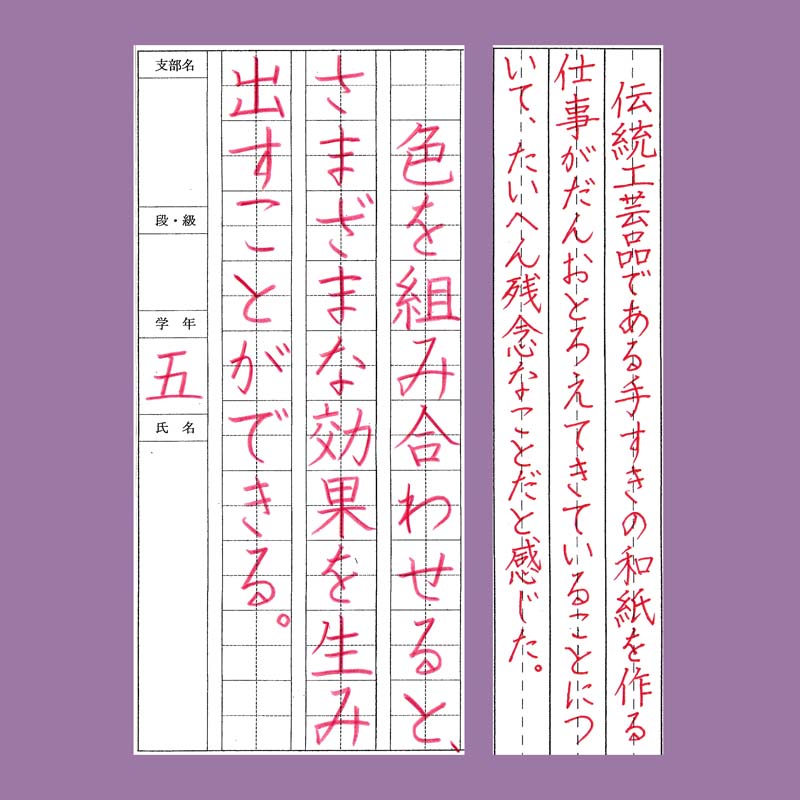 伝統工芸品である手すきの和紙を作る
仕事がだんだんおとろえてきていることにつ
いて、たいへん残念なことだと感じた。
色を組み合わせると、
さまざまな効果を生み
出すことができる。
支部名
段・級
学年
五
氏名